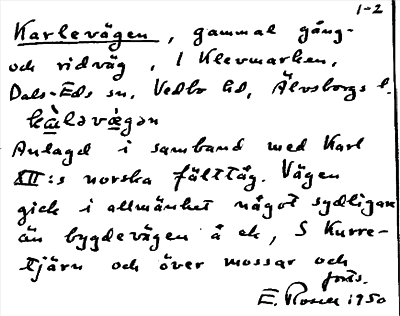 1-2
Karlevägen, gammal gång-
och ridväg, i Klevmarken,
Dals-Eds sn. Vedbo hd, Älvsborgs l.
kà̱ləvæ̱gən
Anlagd i samband med Karl
XII:s norska fälttåg. Vägen
gick i allmänhet något sydligare
än bygdevägen å ek, S Kurre-
tjärn och över mossar och
forts.
E. Rosell 1950